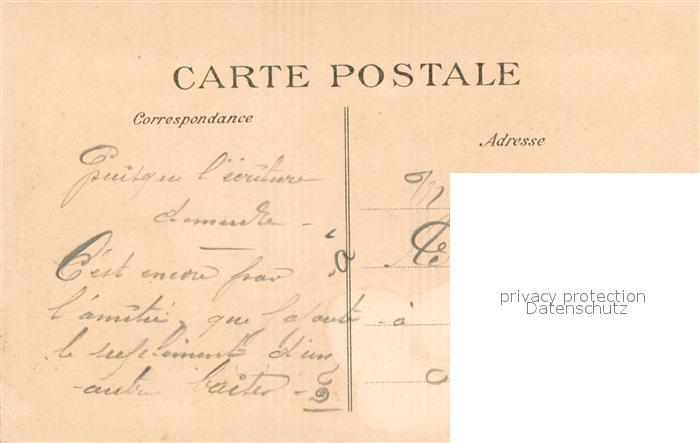 CARTE POSTALE
Correspondance
Adresse
Puisque l'écriture
demeure -
C'est encore par
l'amitié, que j'ajoute - à
le supplément d'un
autre baiser -
M
privacy protection
Datenschutz